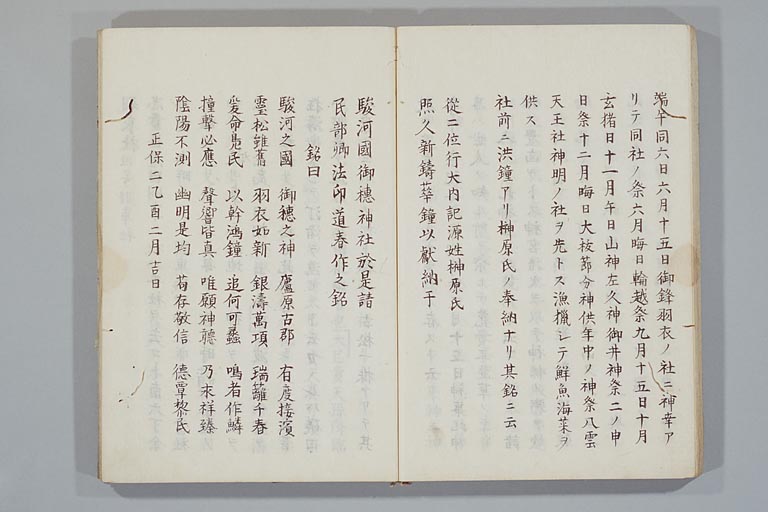 端午同六日六月十五日御鋒羽衣ノ社ニ神幸ア
リテ同社ノ祭六月晦日輪越祭九月十五日十月
玄猪日十一月午日山神左久神御井神祭二ノ申
日祭十二月晦日大祓節分神供年中ノ神祭八雲
天王社神明ノ社ヲ先トス漁獵シテ鮮魚海菜ヲ
供ス
社前ニ洪鐘アリ榊原氏ノ奉納ナリ其銘ニ云
從二位行大内記源姓榊原氏
照久新鋳華鐘以獻納于
駿河國御穗神社於是請
民部卿法印道春作之銘
銘曰
駿河之國 御穗之神 廬原古郡 有度接濱
靈松雖舊 羽衣如新 銀濤萬項 瑞蘺千春
爰命鳧民 以幹鴻鐘 追何可蠡 鳴者作鱗
撞擊必應 聲響皆真 唯願神聽 乃求祥臻
陰陽不測 幽明是均 苟存敬信 德覃黎民
正保二乙酉二月吉日